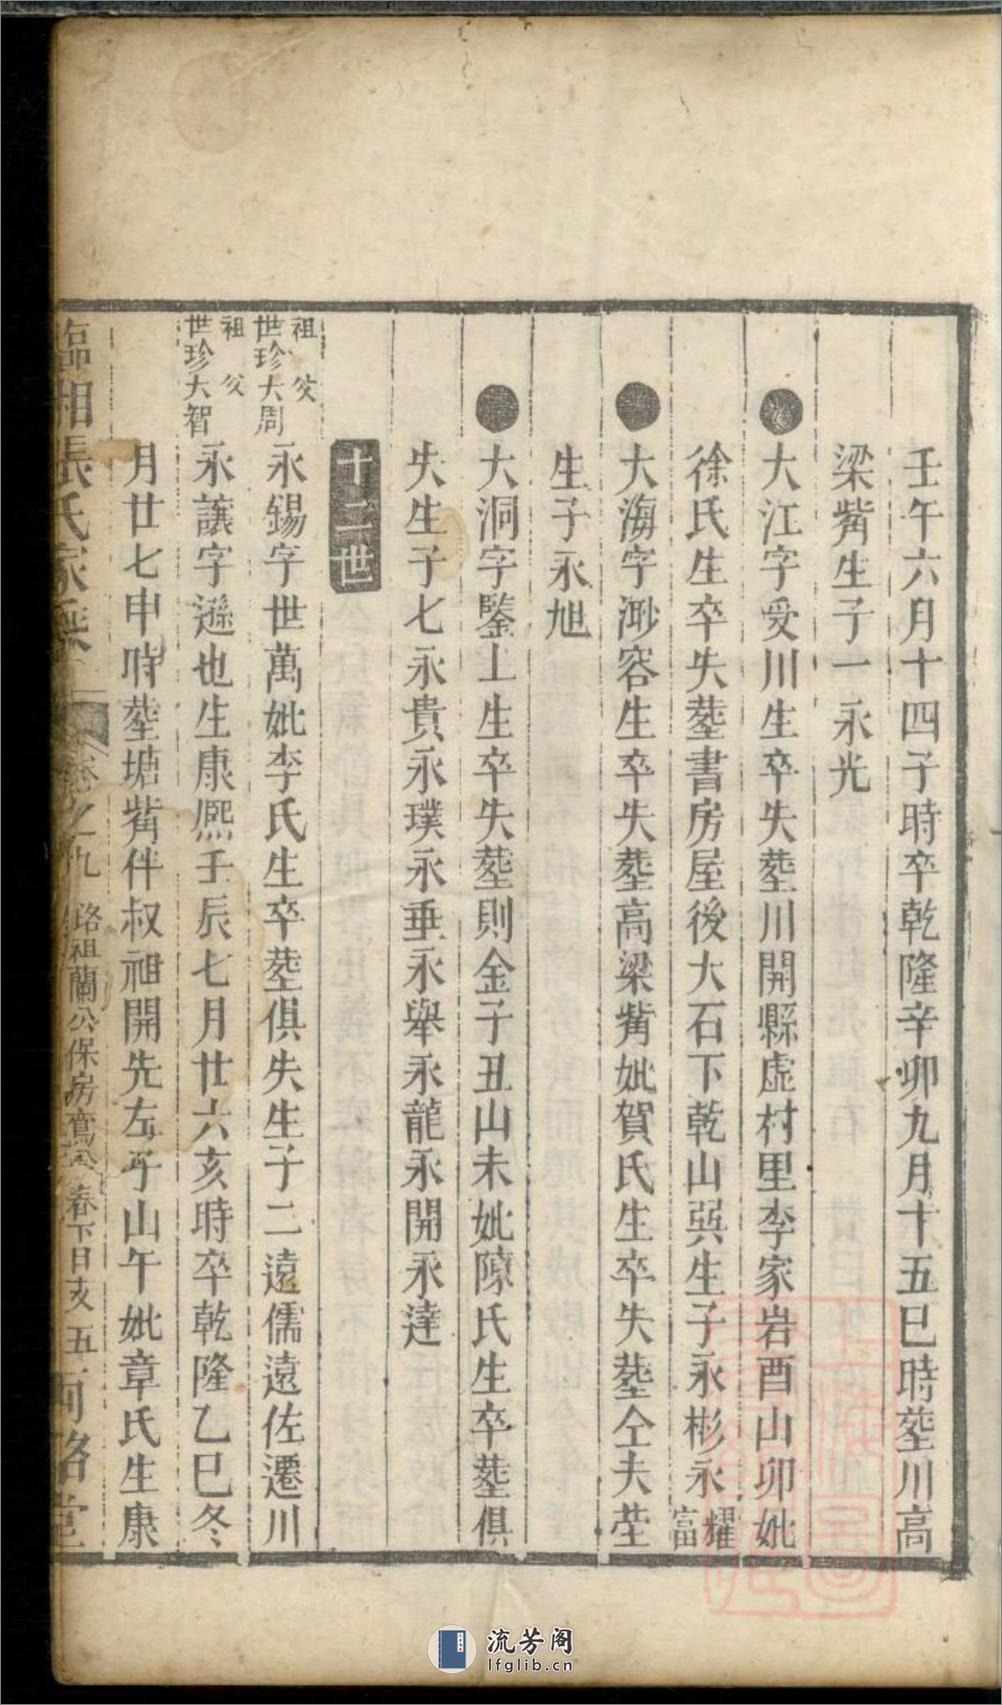 壬午六月十四子時卒乾隆辛卯九月十五巳時塟川高
梁觜生子一永光
大江字受川生卒失塟川開縣虛村里李家岩酉山卯妣
徐氏生卒失塟書房屋後大石下乾山巽生子永彬永耀富
大海字渺容生卒失塟高梁觜妣賀氏生卒失塟仝夫塋
生子永旭
大洞字鑒上生卒失塟則金子丑山未妣陳氏生卒塟俱
失生子七永貴永璞永垂永舉永龍永開永達
十二世
祖父
世珍大周
永錫字世萬妣李氏生卒塟俱失生子二遠儒遠佐遷川
祖父
世珍大智
永讓字遜也生康熙壬辰七月廿六亥時卒乾隆乙巳冬
月廿七申時塟塘觜伴叔祖開先左子山午妣章氏生康
臨湘張氏家乘
卷之九
路祖蘭公保房鸞公
春下日亥
五
流芳阁
lfglib.cn